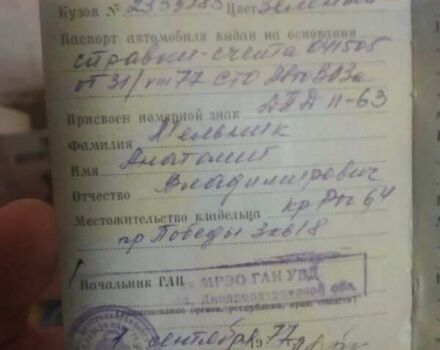 Кузов № 2339183 Цвет зеленый
Паспорт автомобиля выдан на основании
справки-счета 041505
от 31/VIII 77 СТО АвтоВАЗа
Присвоен номерной знак
Фамилия Мельник
Имя Анатолий
Отчество Владимирович
Местожительство владельца кр Рог 64
пр Победы 3 кв 18
Начальник ГАИ МРЭО ГАИ УВД
Днепропетровской обл.
(наименование органа, республики, края, области)
1 сентября 1977